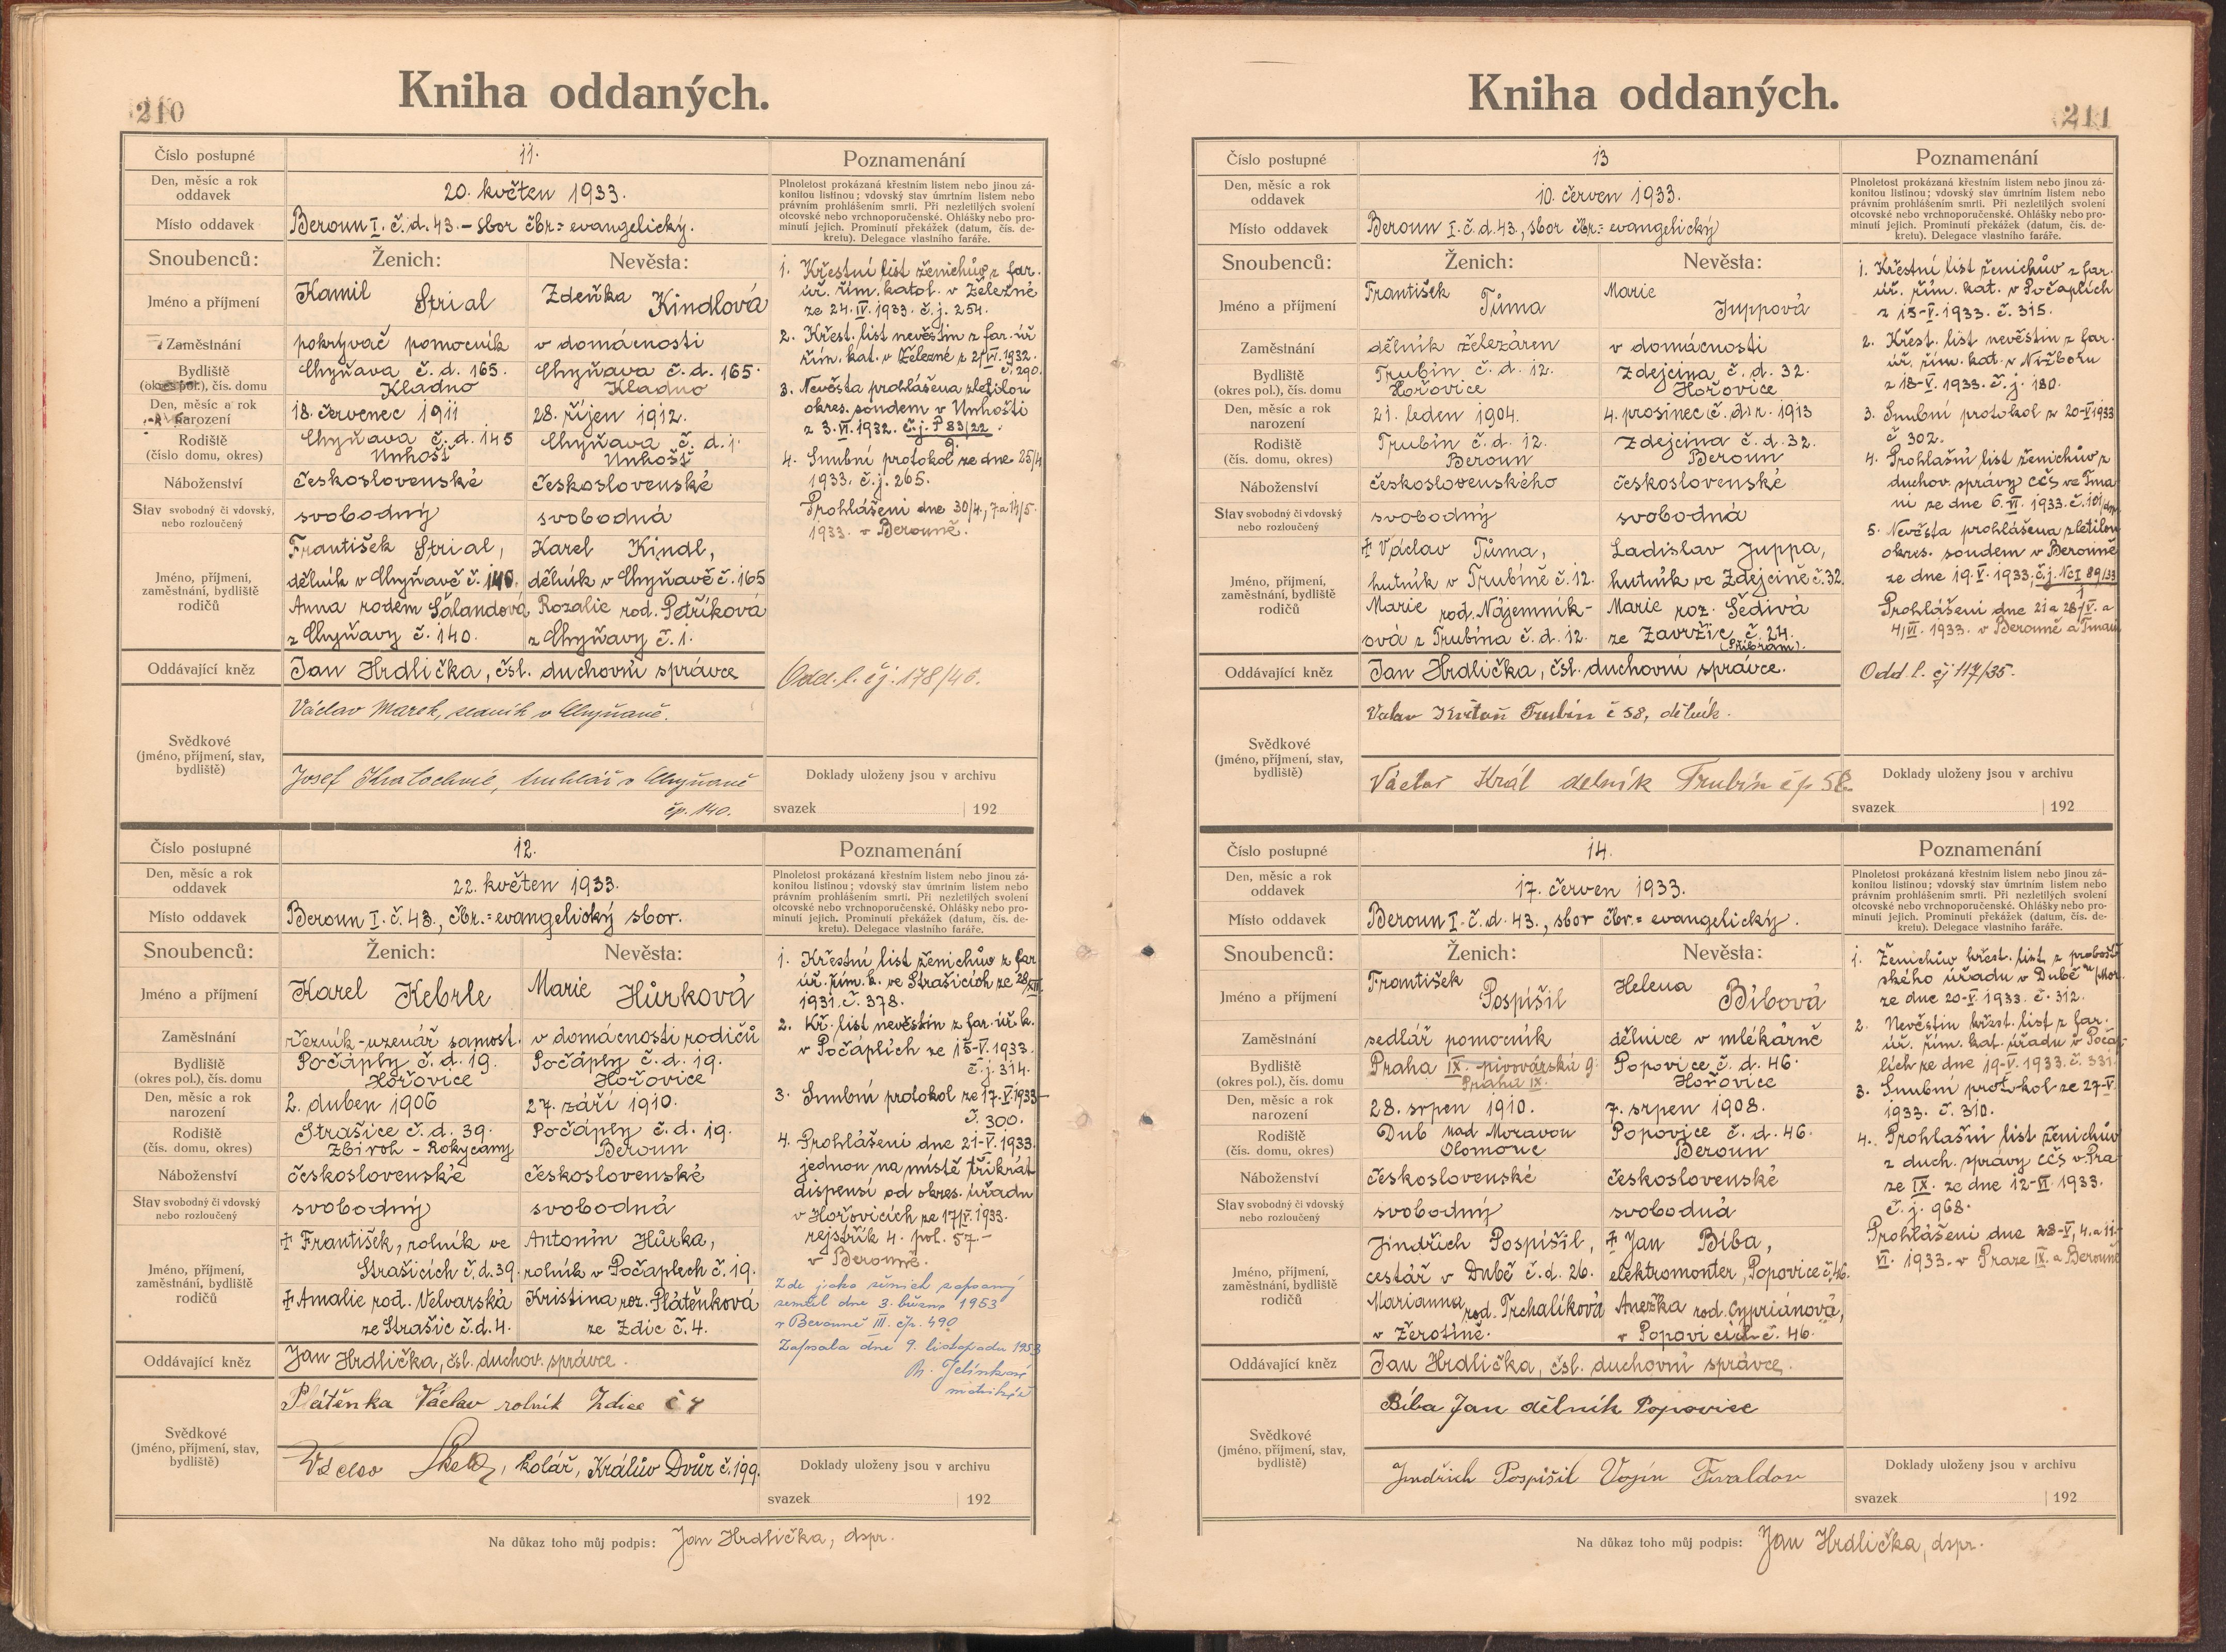 210
Kniha oddaných.
Číslo postupné 11. Poznamenání
Den, měsíc a rok oddavek 20. květen 1933.
Plnoletost prokázaná křestním listem nebo jinou zá-
konitou listinou; vdovský stav úmrtním listem nebo
právním prohlášením smrti. Při nezletilých svolení
otcovské nebo vrchnoporučenské. Ohlášky nebo pro-
minutí jejich. Prominutí překážek (datum, čís. de-
kretu). Delegace vlastního faráře.
Místo oddavek Beroun I. č. d. 43. – sbor čbr.= evangelický.
Snoubenců: Ženich: Nevěsta:
Jméno a příjmení Kamil Strial Zdeňka Kindlová
Zaměstnání pokrývač pomocník v domácnosti
Bydliště (okres pol.), čís. domu Chyňava č. d. 165. Kladno Chyňava č. d. 165. Kladno
Den, měsíc a rok narození 18. červenec 1911 28. říjen 1912.
Rodiště (číslo domu, okres) Chyňava č. d. 145 Unhošť Chyňava č. d. 1. Unhošť
Náboženství československé československé
Stav svobodný či vdovský, nebo rozloučený svobodný svobodná
Jméno, příjmení, zaměstnání, bydliště rodičů
František Strial, Karel Kindl,
dělník v Chyňavě č. 140. dělník v Chyňavě č. 165
Anna rodem Šálandová Rozalie rod. Petříková
z Chyňavy č. 140. z Chyňavy č. 1.
Oddávající kněz Jan Hrdlička, čsl. duchovní správce
Svědkové (jméno, příjmení, stav, bydliště)
Václav Marek, v Chyňavě.
Josef Kratochvíl, truhlář v Chyňavě
čp. 140.
1. Křestní list ženichův z far.
úř. řím. katol. v Železné
ze 24. IV. 1933. č. j. 254.
2. Křest. list nevěstin z far. úř
řím. kat. v Železné z 21/VI. 1932.
č. 290.
3. Nevěsta prohlášena zletilou
okres. soudem v Unhošti
z 3. VI. 1932. č. j. P 83/22.
9.
4. Snubní protokol ze dne 25/4
1933. č. j. 265.
Prohlášení dne 30/4, 7 a 14/5.
1933. v Berouně.
Odd. l. čj. 178/46.
Doklady uloženy jsou v archivu
svazek 192
Číslo postupné 12. Poznamenání
Den, měsíc a rok oddavek 22. květen 1933.
Plnoletost prokázaná křestním listem nebo jinou zá-
konitou listinou; vdovský stav úmrtním listem nebo
právním prohlášením smrti. Při nezletilých svolení
otcovské nebo vrchnoporučenské. Ohlášky nebo pro-
minutí jejich. Prominutí překážek (datum, čís. de-
kretu). Delegace vlastního faráře.
Místo oddavek Beroun I. č. 43., čbr.= evangelický sbor.
Snoubenců: Ženich: Nevěsta:
Jméno a příjmení Karel Kebrle Marie Hůrková
Zaměstnání řezník-uzenář samost. v domácnosti rodičů
Bydliště (okres pol.), čís. domu Počáply č. d. 19. Hořovice Počáply č. d. 19. Hořovice
Den, měsíc a rok narození 2. duben 1906 27. září 1910.
Rodiště (čís. domu, okres) Strašice č. d. 39. Zbiroh - Rokycany Počáply č. d. 19. Beroun
Náboženství československé československé
Stav svobodný či vdovský nebo rozloučený svobodný svobodná
Jméno, příjmení, zaměstnání, bydliště rodičů
† František, rolník ve Antonín Hůrka,
Strašicích č. d. 39. rolník v Počaplech č. 19.
† Amalie rod. Velvarská Kristina roz. Plátěnková
ze Strašic č. d. 4. ze Zdic č. 4.
Oddávající kněz Jan Hrdlička, čsl. duchov. správce.
Svědkové (jméno, příjmení, stav, bydliště)
Plátěnka Václav rolník Zdice č 4
Václav , kolář, Králův Dvůr č. 199.
1. Křestní list ženichův z far
úř. řím. k. ve Strašicích ze 28/XII.
1931. č. 378.
2. Kř. list nevěstin z far. úř. k.
v Počáplích ze 15-V. 1933.
č. j. 314.
3. Snubní protokol ze 17-V. 1933-
č. 300.
4. Prohlášení dne 21-V. 1933.
jednou na místě třikrát
dispensí od okres. úřadu
v Hořovicích ze 17/V. 1933.
rejstřík 4. pol. 57-
v Berouně.
Zde jako ženich zapsaný
zemřel dne 3. března 1953
v Berouně III. čp. 490
Zapsala dne 9. listopadu 1953
Jelínková
matrikářka
Doklady uloženy jsou v archivu
svazek 192
Na důkaz toho můj podpis: Jan Hrdlička, dspr.
211
Kniha oddaných.
Číslo postupné 13 Poznamenání
Den, měsíc a rok oddavek 10. červen 1933.
Plnoletost prokázaná křestním listem nebo jinou zá-
konitou listinou; vdovský stav úmrtním listem nebo
právním prohlášením smrti. Při nezletilých svolení
otcovské nebo vrchnoporučenské. Ohlášky nebo pro-
minutí jejich. Prominutí překážek (datum, čís. de-
kretu). Delegace vlastního faráře.
Místo oddavek Beroun I. č. d. 43., sbor čbr.= evangelický
Snoubenců: Ženich: Nevěsta:
Jméno a příjmení František Tůma Marie Juppová
Zaměstnání dělník železáren v domácnosti
Bydliště (okres pol.), čís. domu Trubín č. d. 12. Hořovice Zdejcina č. d. 32. Hořovice
Den, měsíc a rok narození 21. leden 1904. 4. prosinec 1913
Rodiště (čís. domu, okres) Trubín č. d. 12. Beroun Zdejcina č. d. 32. Beroun
Náboženství československého československé
Stav svobodný či vdovský nebo rozloučený svobodný svobodná
Jméno, příjmení, zaměstnání, bydliště rodičů
† Václav Tůma, Ladislav Juppa,
hutník v Trubíně č. 12. hutník ve Zdejcině č. 32.
Marie rod. Nájemník- Marie roz. Šedivá
ová z Trubína č. d. 12. ze Zavržic č. 24.
(Příbram).
Oddávající kněz Jan Hrdlička, čsl. duchovní správce.
Svědkové (jméno, příjmení, stav, bydliště)
Trubín č 58, dělník.
Václav Král delník Trubín čp 58
1. Křestní list ženichův z far.
úř. řím. kat. v Počaplích
z 15-V. 1933. č. 315.
2. Křest. list nevěstin z far.
úř. řím. kat. v Nižboru
z 18-V. 1933. č. j. 180.
3. Snubní protokol z 20-V 1933
č 302.
4. Prohlašní list ženichův z
duchov. správy CČS ve Tma
ni ze dne 6. VI. 1933. č. 101/
5. Nevěsta prohlášena zletilou
okres. soudem v Berouně
ze dne 19. V. 1933, č. j. Nc I 89/33
Prohlášení dne 21 a 28/V. a
4/VI. 1933. v Berouně a Tmani
Odd. l. čj 117/35.
Doklady uloženy jsou v archivu
svazek 192
Číslo postupné 14. Poznamenání
Den, měsíc a rok oddavek 17. červen 1933.
Plnoletost prokázaná křestním listem nebo jinou zá-
konitou listinou; vdovský stav úmrtním listem nebo
právním prohlášením smrti. Při nezletilých svolení
otcovské nebo vrchnoporučenské. Ohlášky nebo pro-
minutí jejich. Prominutí překážek (datum, čís. de-
kretu). Delegace vlastního faráře.
Místo oddavek Beroun I. č. d. 43., sbor čbr.= evangelický.
Snoubenců: Ženich: Nevěsta:
Jméno a příjmení František Pospíšil Helena Bíbová
Zaměstnání sedlář pomocník dělnice v mlékárně
Bydliště (okres pol.), čís. domu Praha IX. pivovárská 9. Praha IX. Popovice č. d. 46. Hořovice
Den, měsíc a rok narození 28. srpen 1910. 7. srpen 1908.
Rodiště (čís. domu, okres) Dub nad Moravou Olomouc Popovice č. d. 46. Beroun
Náboženství československé československé
Stav svobodný či vdovský nebo rozloučený svobodný svobodná
Jméno, příjmení, zaměstnání, bydliště rodičů
Jindřich Pospíšil, † Jan Bíba,
cestář v Dubě č. d. 26. elektromonter, Popovice č. 46.
Marianna rod. Trchalíková Anežka rod. Cypriánová,
v Žerotíně. v Popovicích č. 46.
Oddávající kněz Jan Hrdlička, čsl. duchovní správce.
Svědkové (jméno, příjmení, stav, bydliště)
Bíba Jan dělník Popovice
Jindřich Pospíšil Vojín
1. Ženichův křest. list z probošt
ského úřadu v Dubě n/Mor.
ze dne 20-V. 1933. č. 312.
2. Nevěstin křest. list z far.
úř. řím. kat. úřadu v Počap-
lích ze dne 19-V. 1933. č. 331.
3. Snubní protokol ze 27-V.
1933. č. 310.
4. Prohlašní list ženichův
z duch. správy CČS v Pra
ze IX. ze dne 12-VI. 1933.
č. j. 968.
Prohlášení dne 28-V, 4. a 11.
VI. 1933. v Praze IX. a Berouně
Doklady uloženy jsou v archivu
svazek 192
Na důkaz toho můj podpis: Jan Hrdlička, dspr.